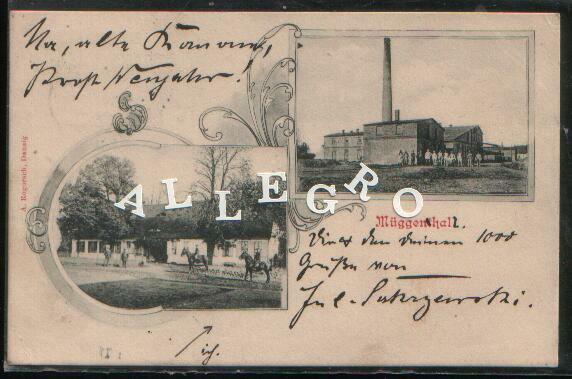 Na, alte Kamera,
Prost Neujahr!
A. Rogorsch, Danzig
ALLEGRO
Müggenhall.
Dir u. den deinen 1000
Grüße von
Jul. Sakrzewski.
ich.